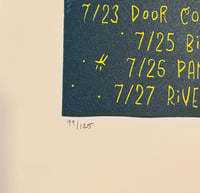 7/23 DOOR CO
7/25 Bi
7/26 PAN
7/27 RiVE
99/125